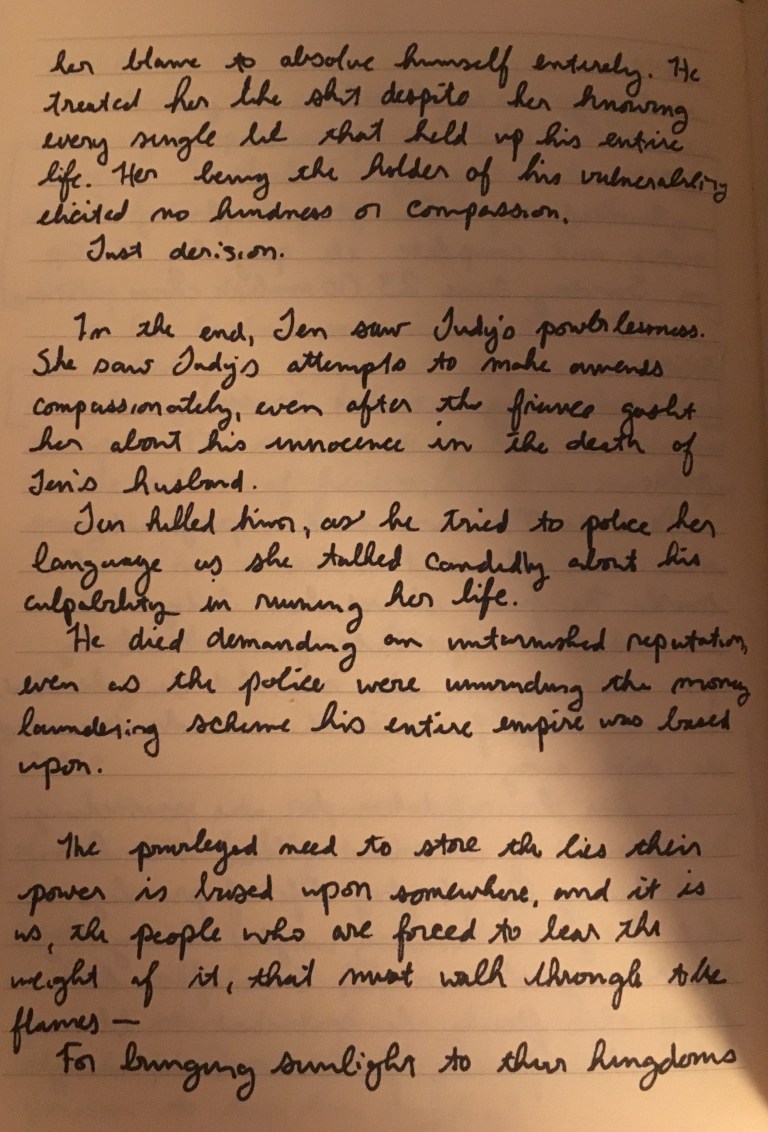 her blame to absolve himself entirely. He
treated her like shit despite her knowing
every single lie that held up his entire
life. Her being the holder of his vulnerability
elicited no kindness or compassion.
Just derision.
In the end, Jen saw Judy's powerlessness.
She saw Judy's attempts to make amends
compassionately, even after the fiance
her about his innocence in the death of
Jen's husband.
Jen killed him, as he tried to police her
language as she talked candidly about his
culpability in ruining her life.
He died demanding an untarnished reputation,
even as the police were unwinding the money
laundering scheme his entire empire was based
upon.
The privileged need to store the lies their
power is based upon somewhere, and it is
us, the people who are forced to bear the
weight of it, that must walk through the
flames —
For bringing sunlight to their kingdoms